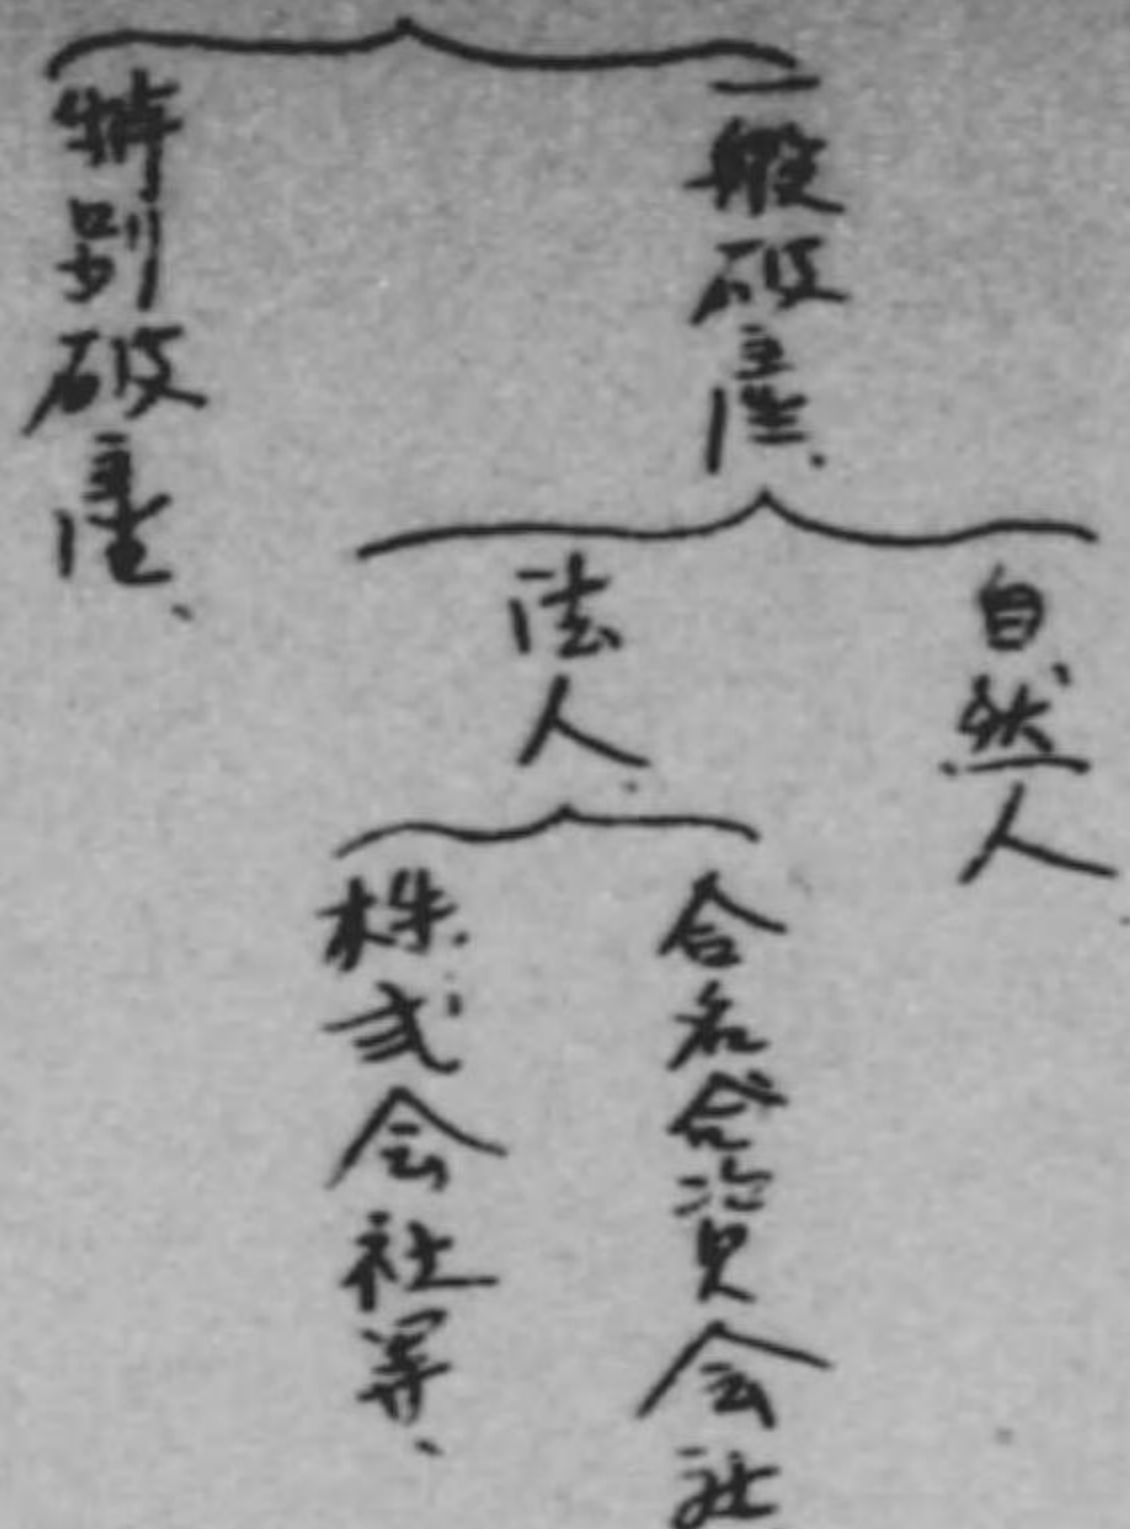 一般破産、
自然人
法人、
合名合資会社
株式会社等、
特別破産、